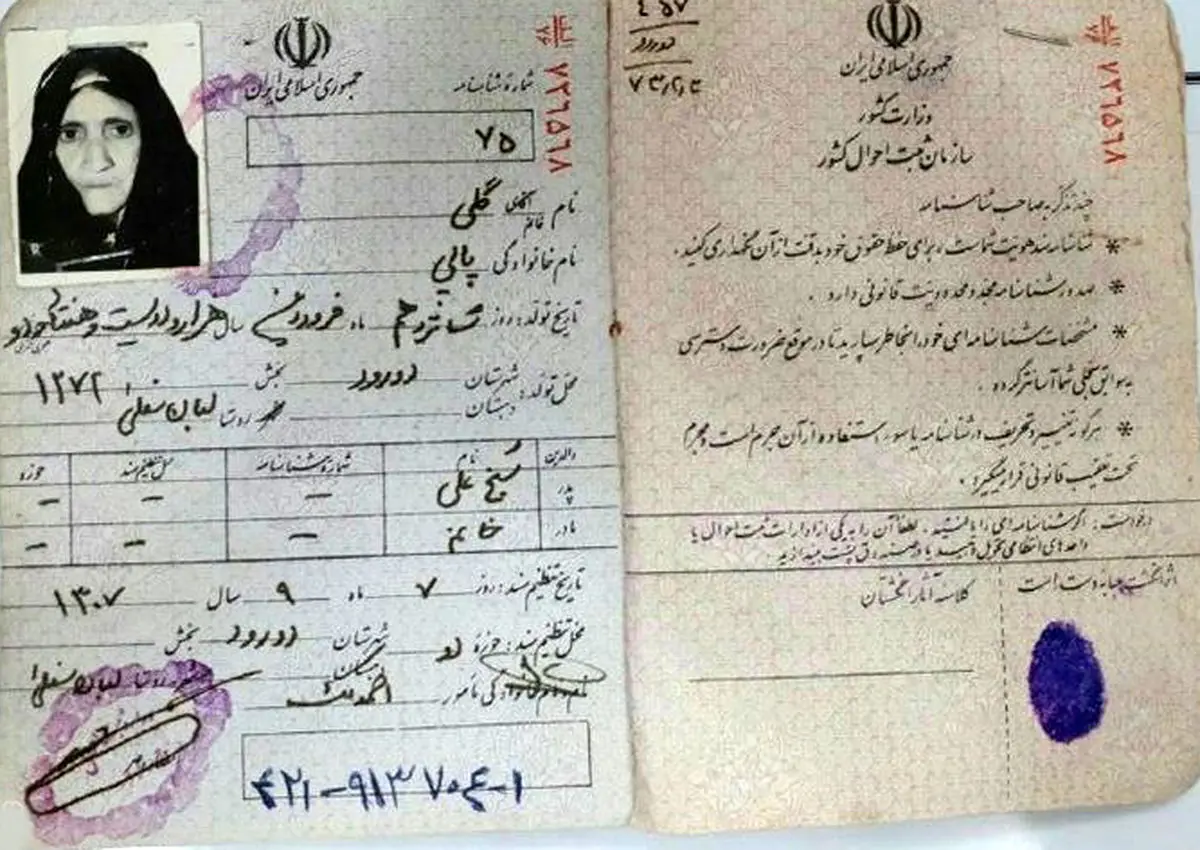 جمهوری اسلامی ایران
شماره شناسنامه
۷۵
۷۲۶۵۶۸
نام آقای خانم گلی
نام خانوادگی پالی
تاریخ تولد: روز شانزدهم ماه فروردین سال هزار و دویست و هفتاد و دو
محل تولد: شهرستان دورود بخش ۱۲۷۲
دهستان روستا لبان سفلی
والدین نام شماره شناسنامه محل تنظیم سند حوزه
پدر شیخ علی - - -
مادر خانم - - -
تاریخ تنظیم سند: روز ۷ ماه ۹ سال ۱۳۰۷
محل تنظیم سند: حوزه شهرستان دورود بخش
روستا لبان سفلی
نام و نام خانوادگی مأمور
۴۲۱-۹۱۳۷۰۴-۱
۴۵۷
دورود
جمهوری اسلامی ایران
وزارت کشور
سازمان ثبت احوال کشور
۷۲۶۵۶۸
چند تذکر به صاحب شناسنامه
* شناسنامه سند هویت شماست، برای حفظ حقوق خود به دقت از آن نگهداری کنید.
* صدور شناسنامه مجدد محدودیت قانونی دارد.
* مشخصات شناسنامه‌ای خود را بخاطر بسپارید تا در موقع ضرورت دسترسی
به سوابق سجلی شما آسانتر گردد.
* هرگونه تغییر و تحریف در شناسنامه یا سوء استفاده از آن جرم است و مجرم
تحت تعقیب قانونی قرار میگیرد.
درخواست: اگر شناسنامه‌ای را یافتید، لطفاً آن را به یکی از ادارات ثبت احوال یا
واحدهای انتظامی تحویل دهید یا در صندوق پست بیندازید.
اثر انگشت سبابه دست راست
کلاسه آثار انگشتان